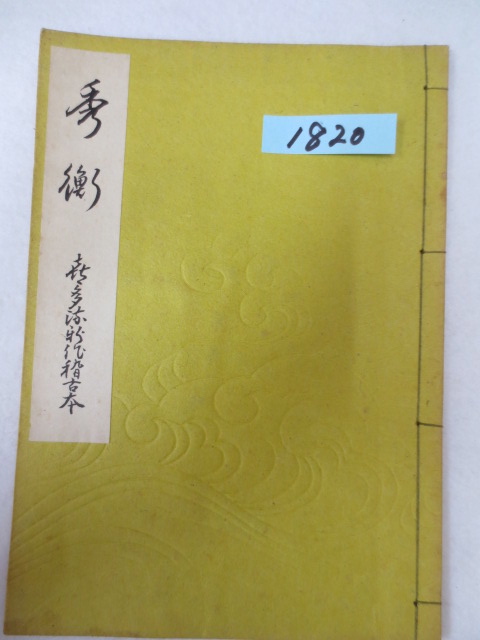 秀衡
喜多流新作稽古本
1820